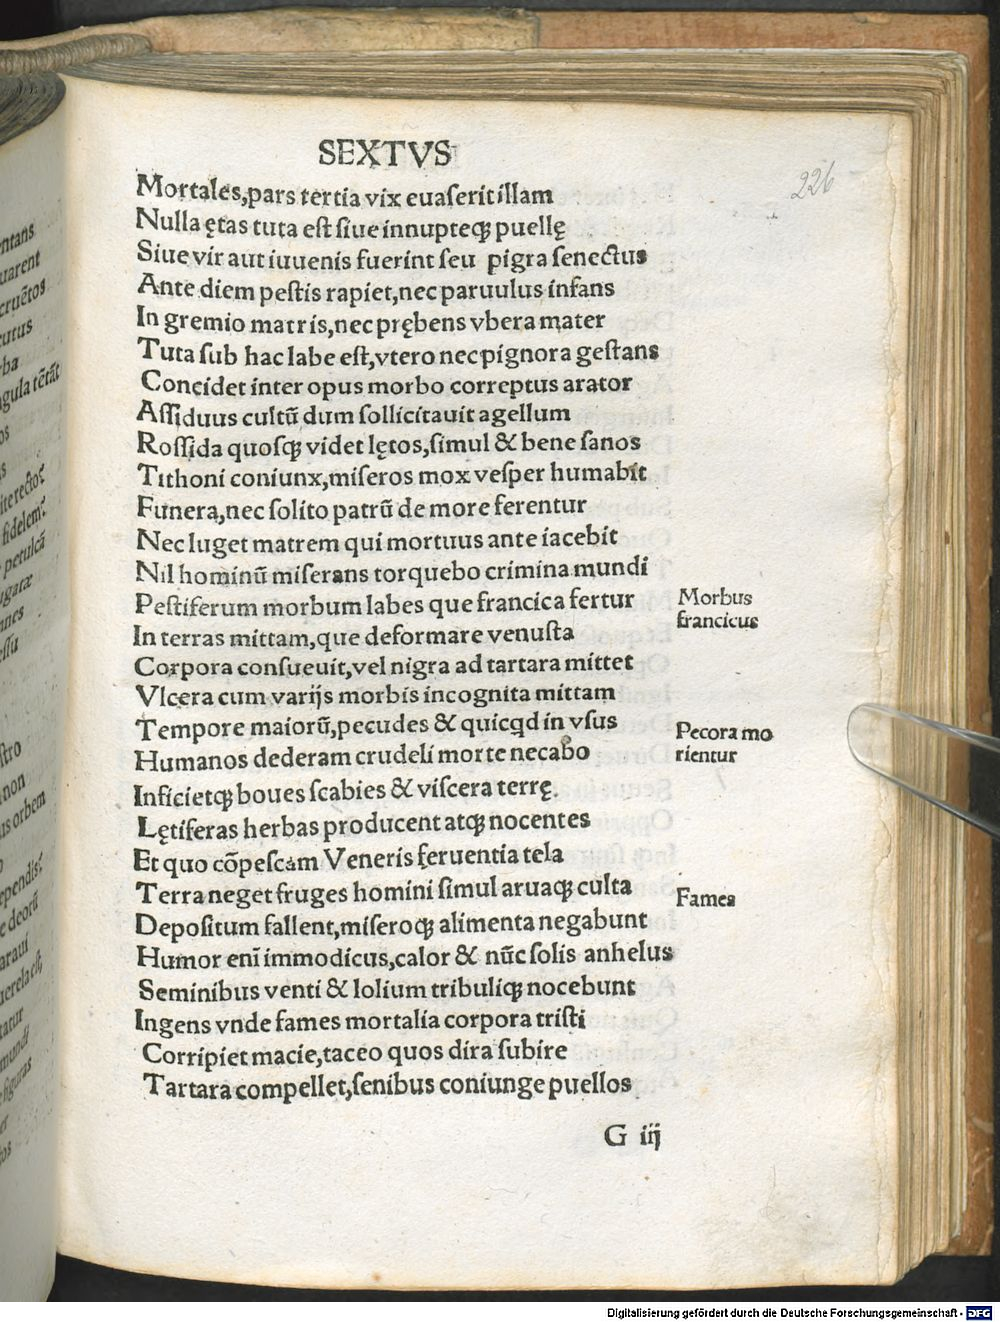 SEXTVS
226
Mortales,pars tertia vix euaſerit illam
Nulla ętas tuta eſt ſiue innupteqꝫ puellę
Siue vir aut iuuenis fuerint ſeu pigra ſenectus
Ante diem peſtis rapiet,nec paruulus infans
In gremio matris,nec prębens vbera mater
Tuta ſub hac labe eſt,vtero nec pignora geſtans
Concidet inter opus morbo correptus arator
Aſſiduus cultū dum ſollicitauit agellum
Roſſida quoſqꝫ videt lętos,ſimul & bene ſanos
Tithoni coniunx,miſeros mox veſper humabit
Funera,nec ſolito patrū de more ferentur
Nec luget matrem qui mortuus ante iacebit
Nil hominū miſerans torquebo crimina mundi
Peſtiferum morbum labes que francica fertur
Morbus
francicus
In terras mittam,que deformare venuſta
Corpora conſueuit,vel nigra ad tartara mittet
Vlcera cum varijs morbis incognita mittam
Tempore maiorū,pecudes & quicqd in vſus
Pecora mo
rientur
Humanos dederam crudeli morte necabo
Inficietqꝫ boues ſcabies & viſcera terrę.
Lętiferas herbas producent atqꝫ nocentes
Et quo cōpeſcam Veneris feruentia tela
Terra neget fruges homini ſimul aruaqꝫ culta
Fames
Depoſitum fallent,miſeroqꝫ alimenta negabunt
Humor enī immodicus,calor & nūc ſolis anhelus
Seminibus venti & lolium tribuliqꝫ nocebunt
Ingens vnde fames mortalia corpora triſti
Corripiet macie,taceo quos dira ſubire
Tartara compellet,ſenibus coniunge puellos
G iij
ntans
uarent
cruētos
cutus
rba
ngula tētāt
os
fidelem
petulcā
nnes
ſtro
non
us orbem
dependis
e deorū
araui
tatur
mundi
figuras
Digitalisierung gefördert durch die Deutsche Forschungsgemeinschaft - DFG